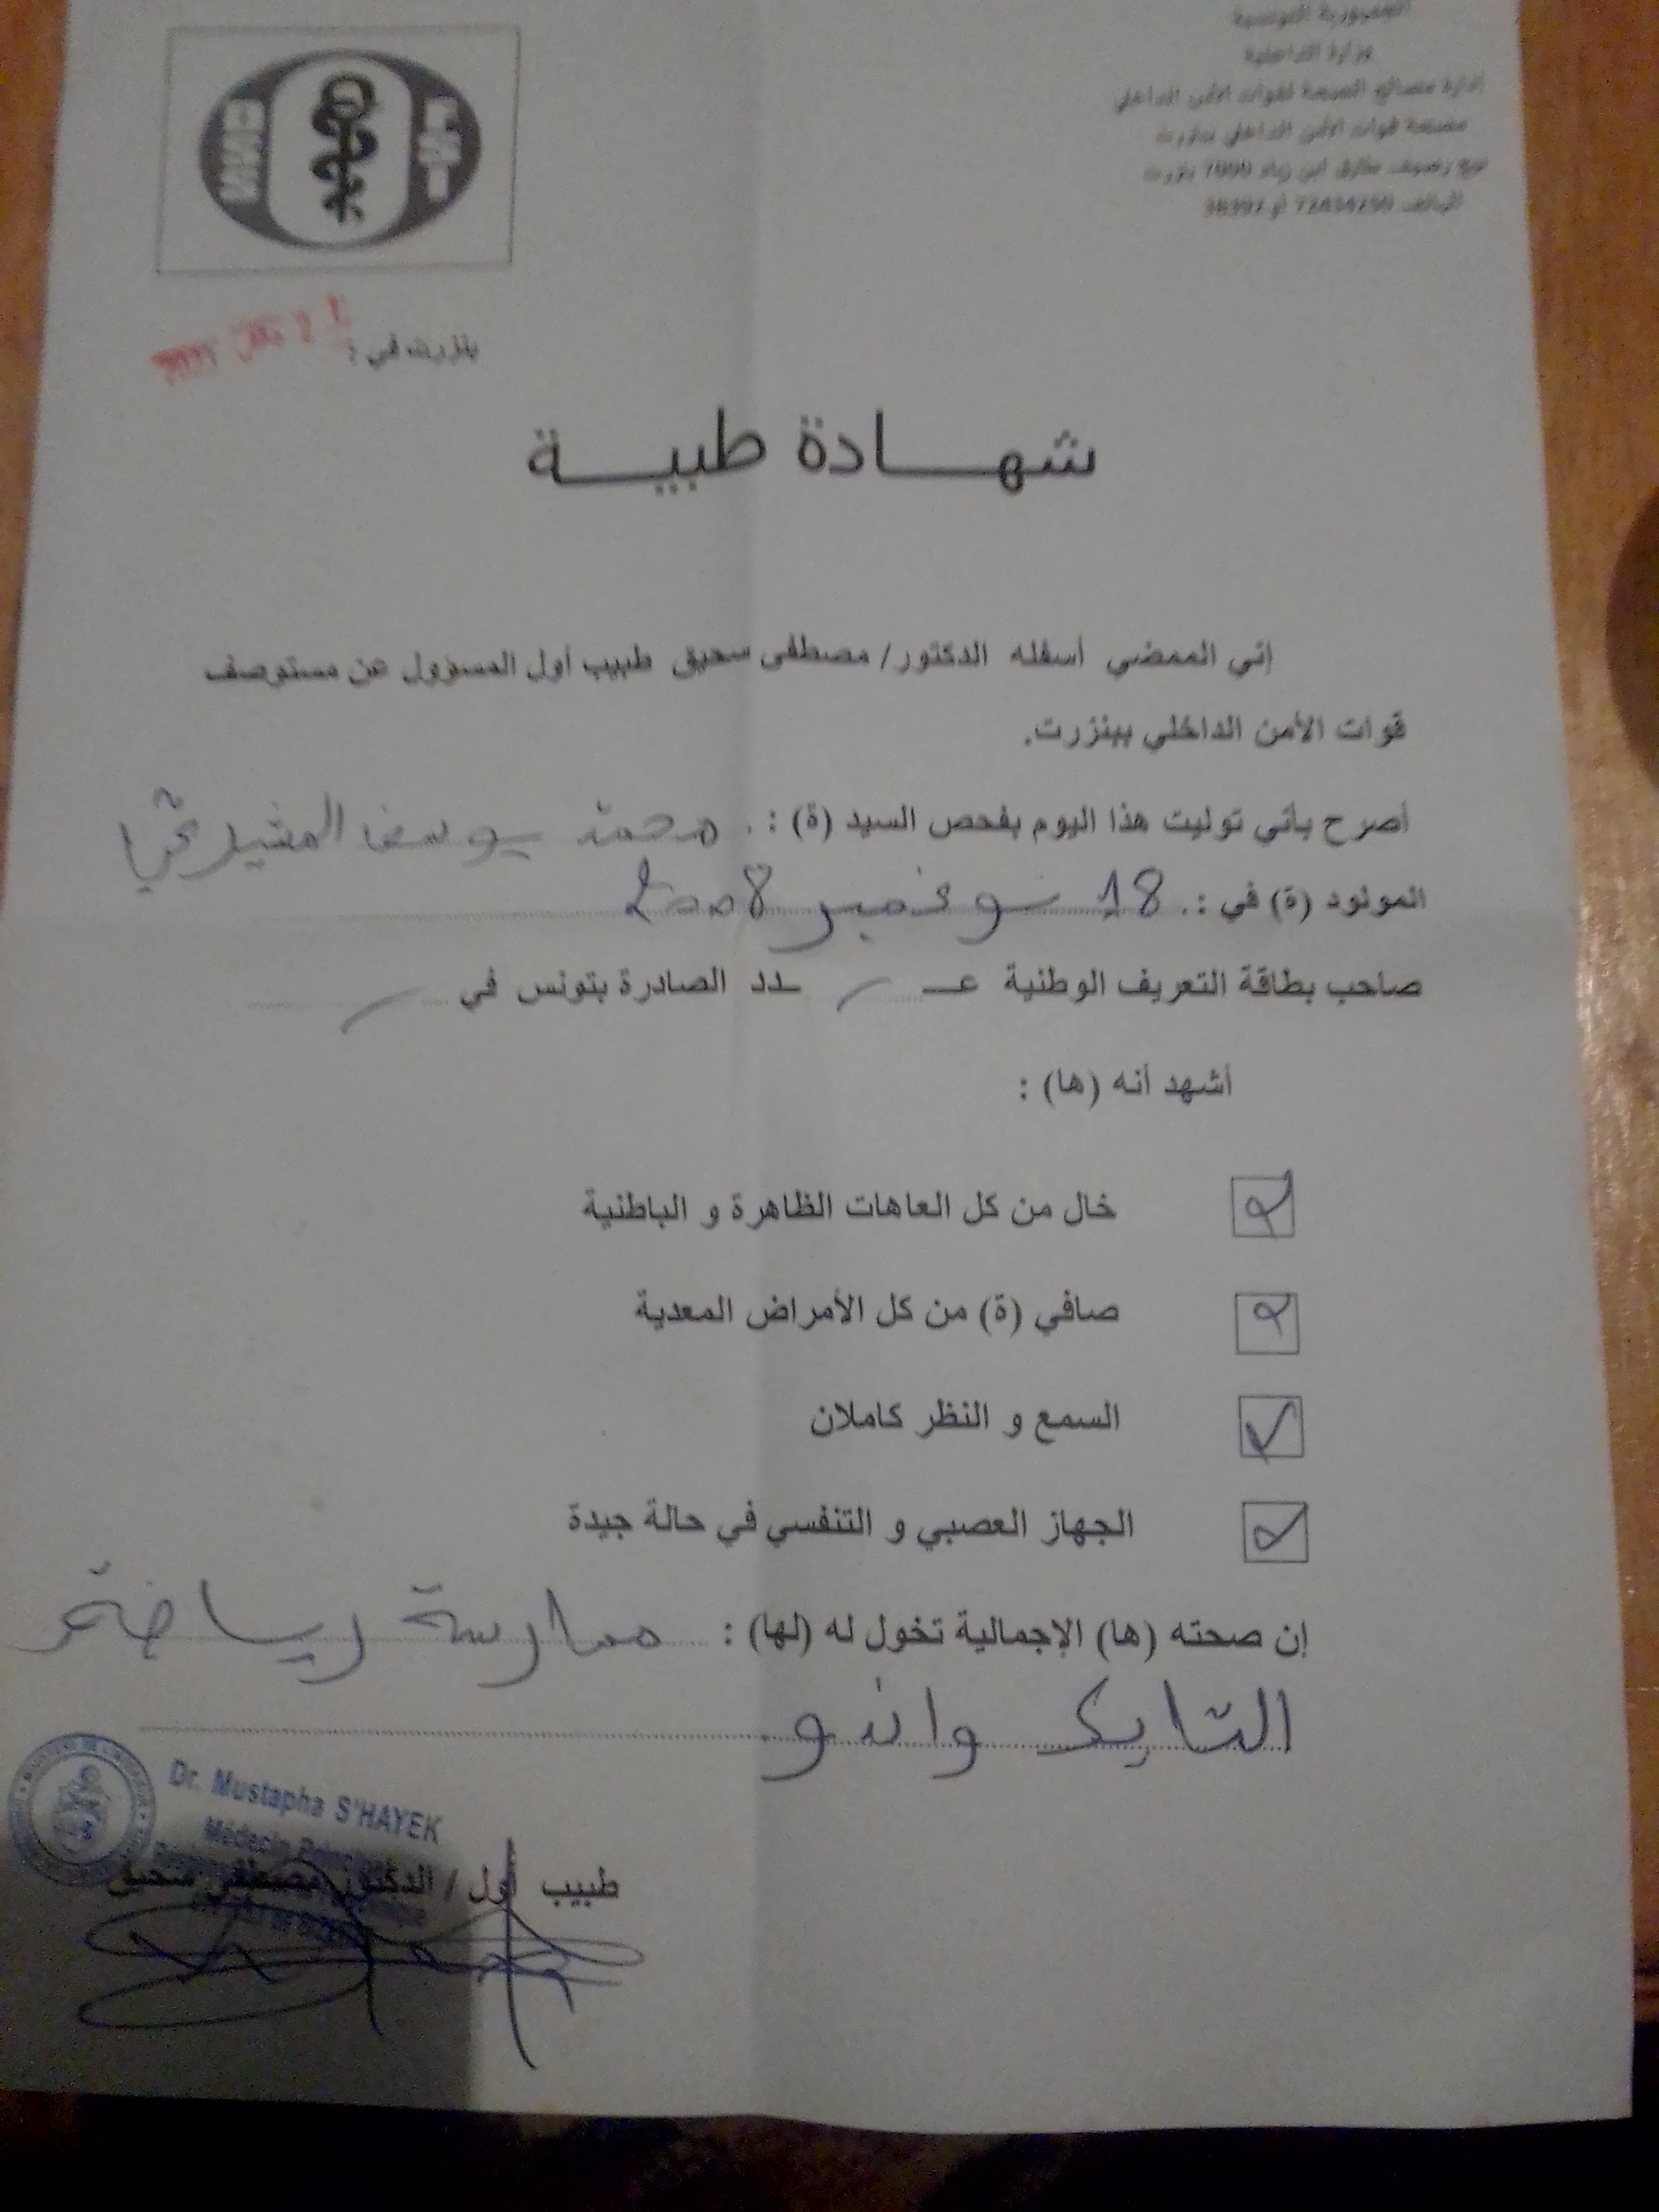 الجمهورية التونسية
وزارة الداخلية
إدارة مصالح الصحة لقوات الأمن الداخلي
مصحة قوات الأمن الداخلي ببنزرت
نهج رصيف طارق ابن زياد 7000 بنزرت
الهاتف 72434250 أو
بنزرت في :
شهادة طبية
إني الممضي أسفله الدكتور/ مصطفى سحيق طبيب أول المسؤول عن مستوصف
قوات الأمن الداخلي ببنزرت.
أصرح بأني توليت هذا اليوم بفحص السيد (ة) : محمد يوسف
المولود (ة) في : 18 نوفمبر 2008
صاحب بطاقة التعريف الوطنية عـ / ـدد الصادرة بتونس في /
أشهد أنه (ها) :
خال من كل العاهات الظاهرة و الباطنية
صافي (ة) من كل الأمراض المعدية
السمع و النظر كاملان
الجهاز العصبي و التنفسي في حالة جيدة
إن صحته (ها) الإجمالية تخول له (لها) : ممارسة رياضة
التايكواندو
Dr. Mustapha S'HAYEK
Médecin
طبيب أول / الدكتور مصطفى سحيق